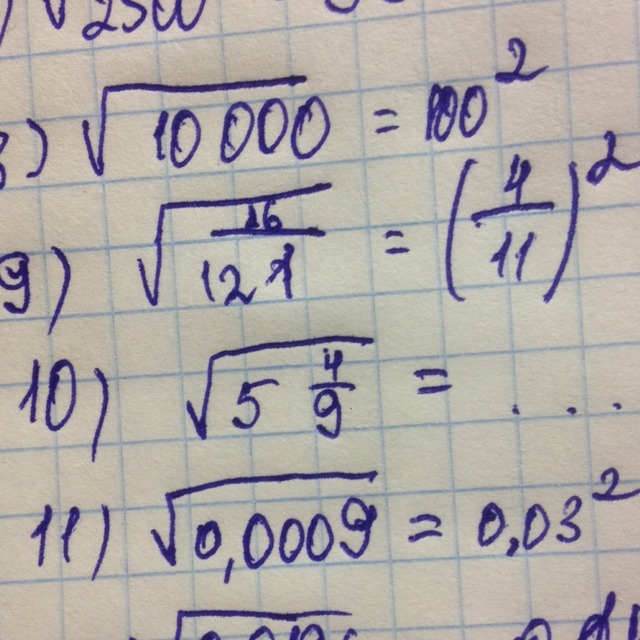 √2500
8) √10 000 = 100²
9) √16/121 = (4/11)²
10) √5 4/9 = . . .
11) √0,0009 = 0,03²